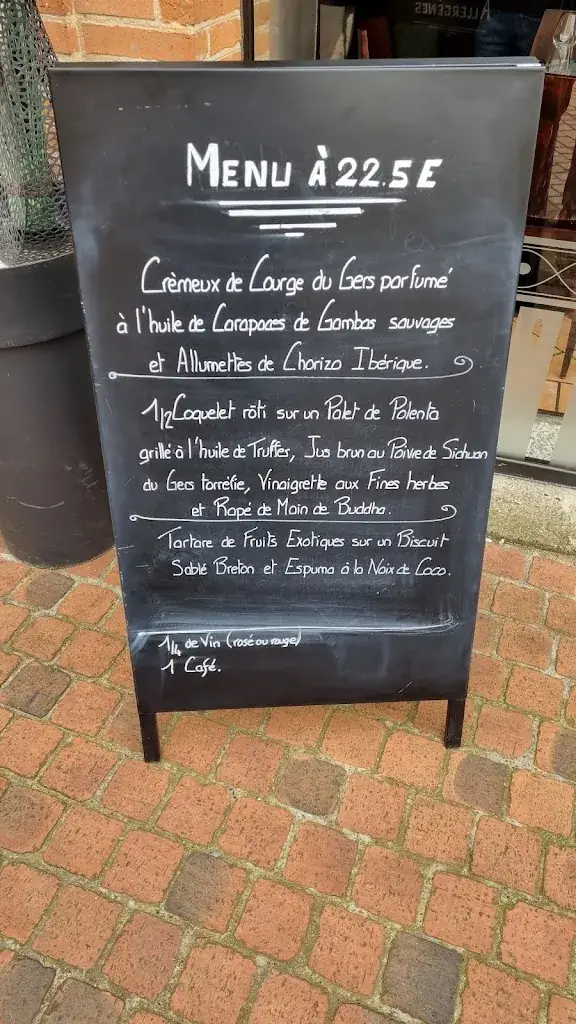 ALLERGÈNES
MENU À 22.5 E
Crèmeux de Courge du Gers parfumé
à l'huile de Carapaces de Gambas sauvages
et Allumettes de Chorizo Ibérique.
1/2 Coquelet rôti sur un Palet de Polenta
grillé à l'huile de Truffes, Jus brun au Poivre de Sichuan
du Gers torréfié, Vinaigrette aux Fines herbes
et Rapé de Main de Buddha.
Tartare de Fruits Exotiques sur un Biscuit
Sablé Breton et Espuma à la Noix de Coco.
1/4 de Vin (rosé ou rouge)
1 Café.